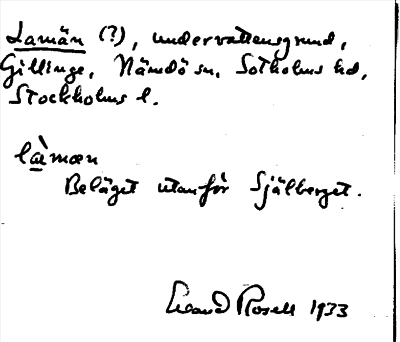 Lamän (?), undervattensgrund,
Gillinge, Nämdö sn, Sotholms hd,
Stockholms l.
là̱mæn
Beläget utanför Själberget.
Rosell 1933